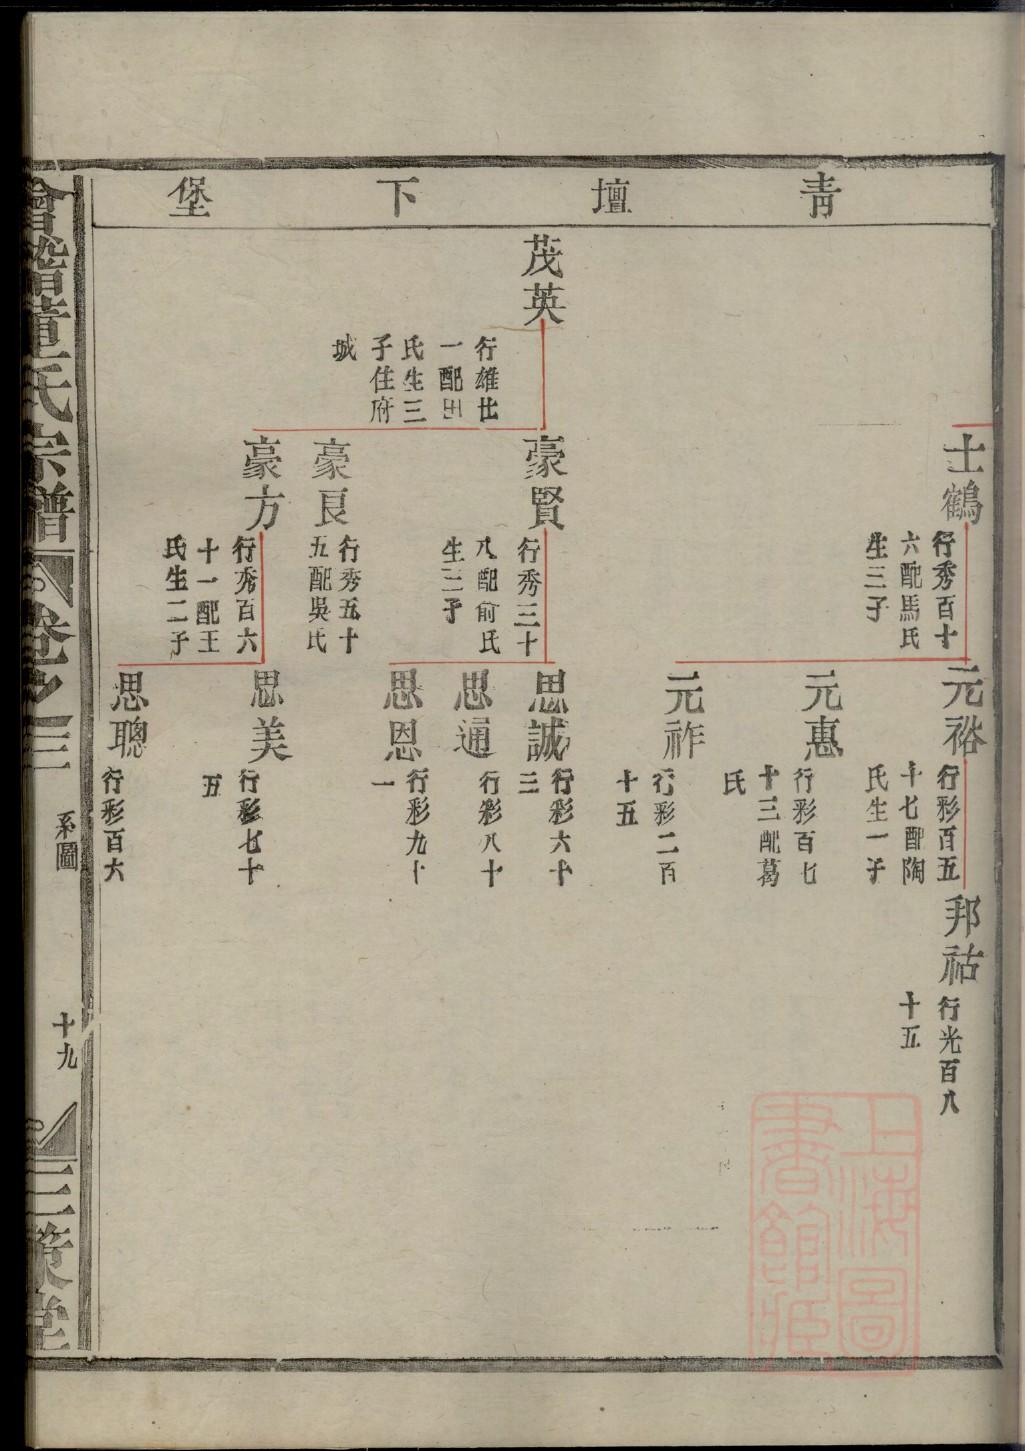 青壇下堡
士鶴
行秀百十
六配馬氏
生三子
元裕
行彩百五
十七配陶
氏生一子
邦祜
行光百八
十五
元惠
行彩百七
十三配葛
氏
元祚
行彩二百
十五
茂英
行雄廿
一配田
氏生三
子住府
城
豪賢
行秀三十
八配俞氏
生三子
思誠
行彩六十
三
思通
行彩八十
思恩
行彩九十
一
豪良
行秀五十
五配吳氏
豪方
行秀百六
十一配王
氏生二子
思美
行彩七十
五
思聰
行彩百六
會稽董氏宗譜
卷之三
系圖
十九
三策堂
上海圖
書館臧